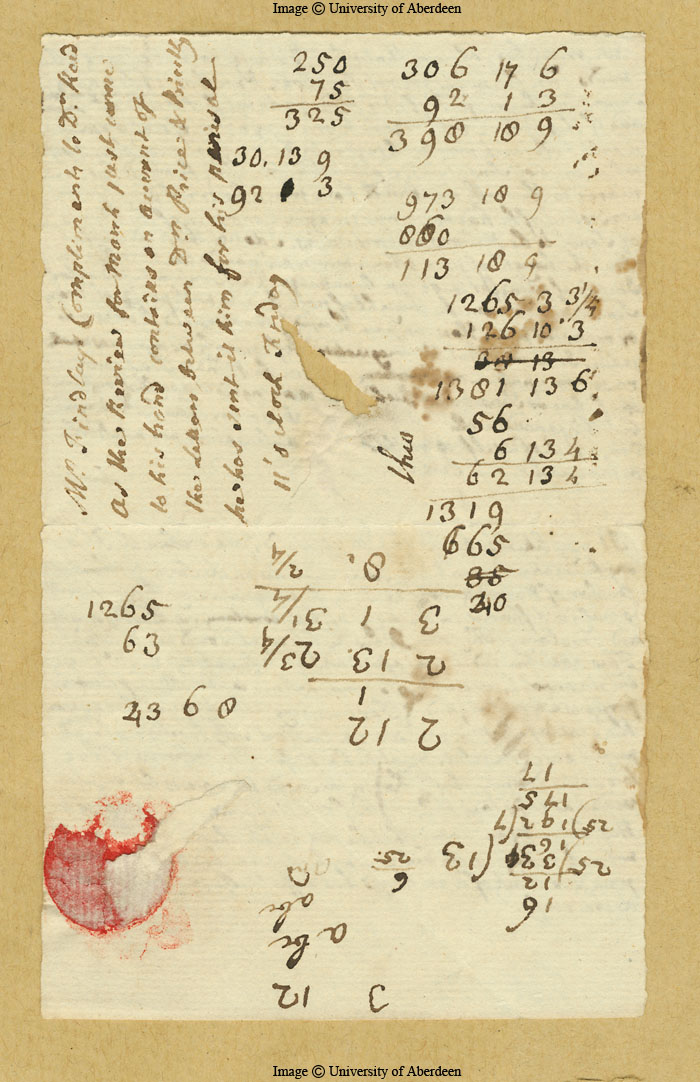 Image © University of Aberdeen
Mr. Findlays Compliments to Dr. Reid
As the Review for March last come
to his hand contains an account of
the Letters between Drs Price & Priestly
he has sent it him for his perusal
11 o'clock Friday
250
75
325
30. 13 9
92 3
306 17 6
92 1 3
398 18 9
973 18 9
860
113 18 9
1265 3 3/4
126 10 3
1381 13 6
56
thus
6 13 4
62 13 4
1319
665
85
240
1265
63
243 9 8
2 12
1
2 13. 2 3/4
3 1 3 1/4
8. 2/4
16
12
25) 33 (13
192 (7
175
17
6
25
a b c
a b c
3 12
Image © University of Aberdeen